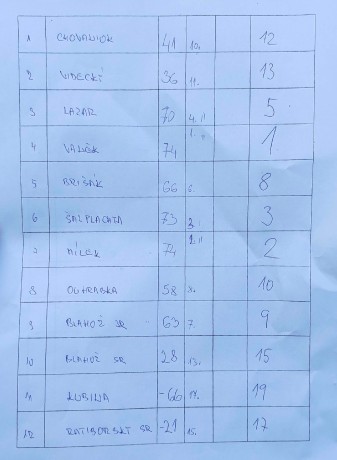 1 CHOVANIOK 41 10. 12
2 VIDECKÝ 36 11. 13
3 LAZAR 70 4. 11 5
4 VALŠÍK 74 1. 1
5 BRIŠÁK 66 6. 8
6 ŠALPLACATA 73 3. 3
7 MÍLEK 74 2. 11 2
8 OUHRABKA 58 8. 10
9 BLAHOŽ JR 63 7. 9
10 BLAHOŽ SR 28 13. 15
11 KUBINA -66 17. 19
12 RATIBORSKÝ SR -21 15. 17